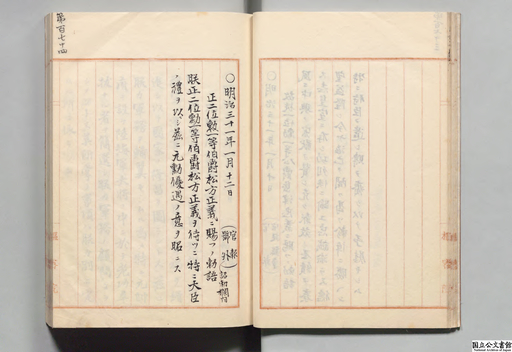 第百七十四
○明治三十一年一月十二日
(官報號外)詔勅欄
正二位勲一等伯爵松方正義ニ賜フノ勅語
朕正二位勲一等伯爵松方正義ヲ待ツニ特ニ大臣
ノ禮ヲ以シ茲ニ元勲優遇ノ意ヲ昭ニス
国立公文書館
National Archives of Japan